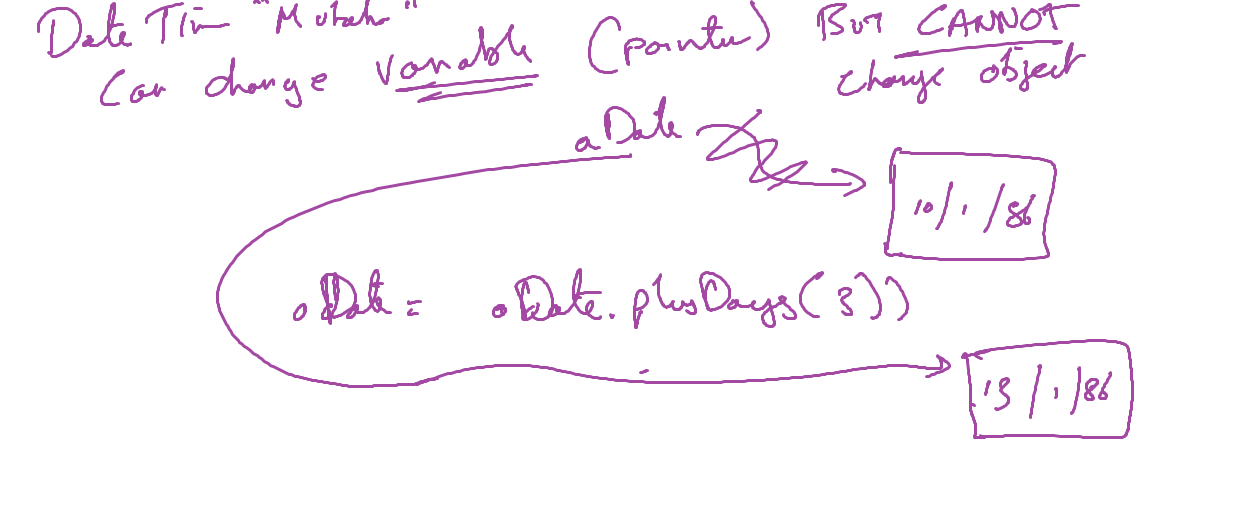 Date Tim "Mutate"
Can change variable (pointer) BUT CANNOT
change object
aDate
10/1/86
aDate = aDate.plusDays(3))
13/1/86